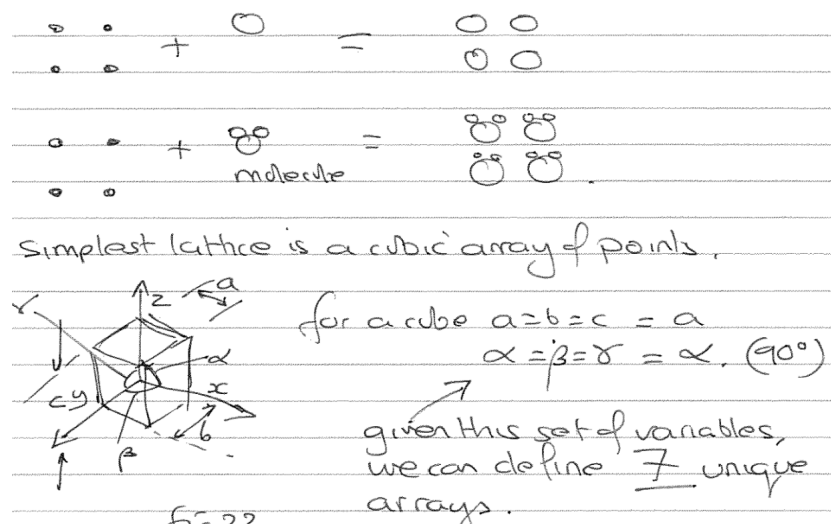 + =
+ =
molecule
simplest lattice is a cubic array of points.
a
z
γ
for a cube a=b=c = a
α
α=β=γ = α. (90°)
x
c y
b
β
given this set of variables,
we can define 7 unique
arrays.